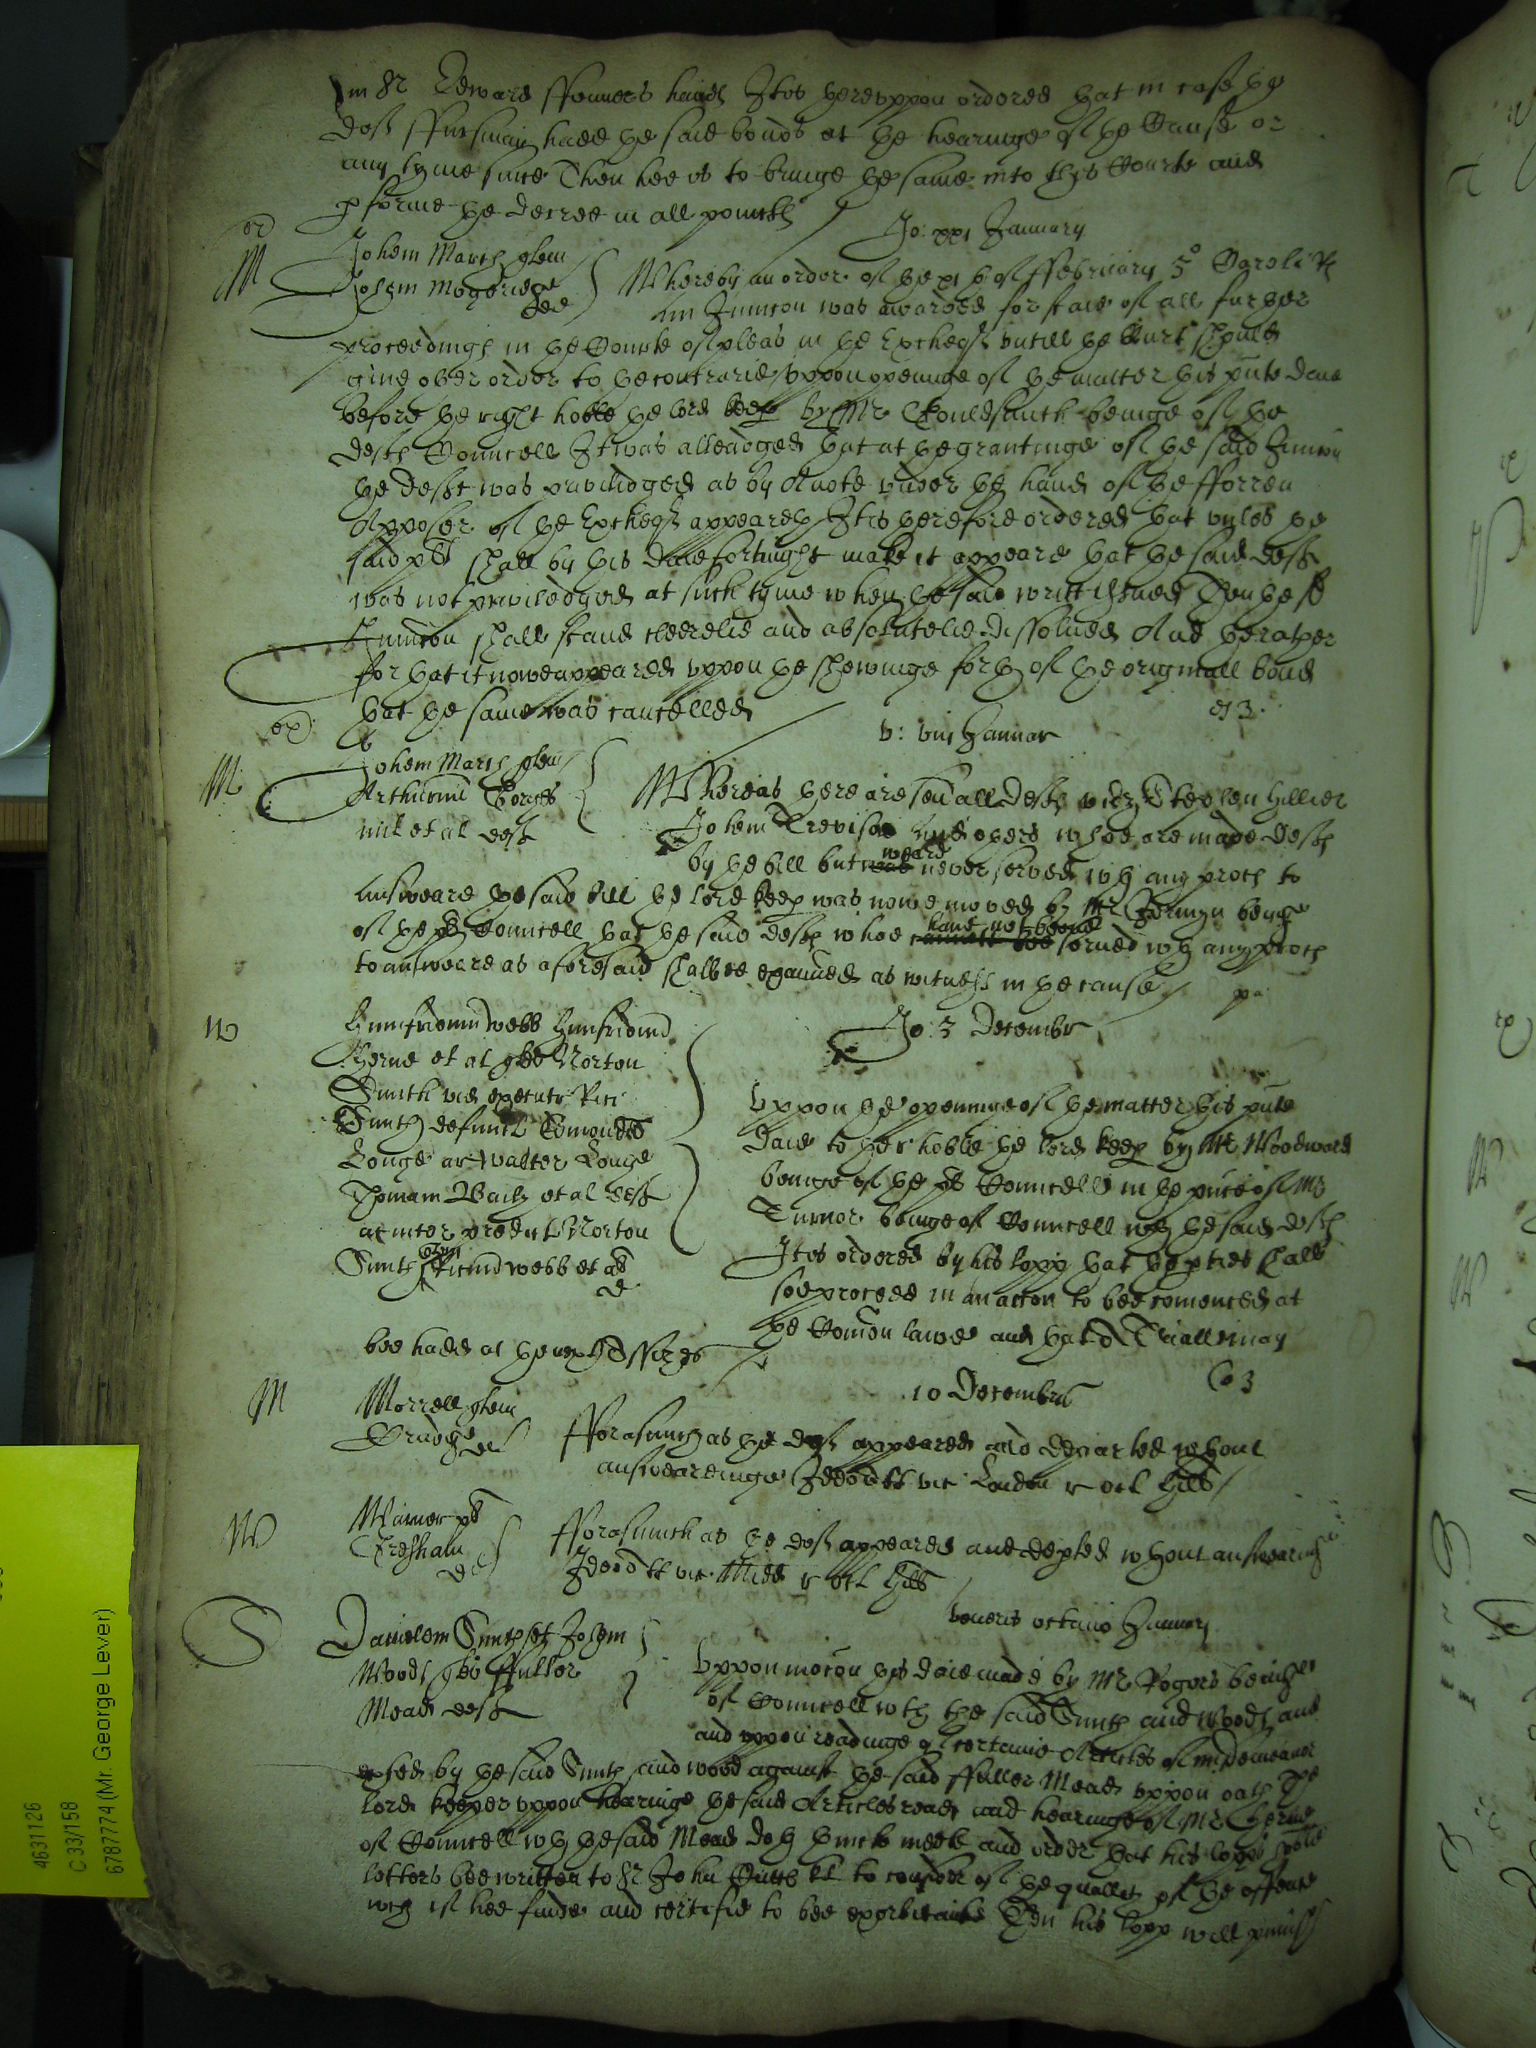 in Sr Edward ffenners hands It is hereuppon ordered that in case the
deft ffursman hadd the said bonds at the hearinge of the Cause or
any tyme since Then hee is to bringe the same into this Courte and
pforme the decree in all pointes
Jo: xxi January
Johem Marsh quer
Johem
def
Whereby an order of the of ffebruary 5° Caroli Rs
an Iniunccon was awarded for staie of all further
proceedings in the Courte of pleas in the Excheqr untill the Court should
give other order to the contrarie uppon openinge of the matter this pnte daie
before the right hoble the lord keep by Mr being of the
defts Councell It was alleadged that at the grantinge of the said Iniunccon
the deft was priviledged as by A note under the hand of the fforren
Apposer of the Excheqr appeareth It is therefore ordered that unles the
said plt shall by this daie fortnight make it appeare that the said deft
was not priviledged at such tyme when the said writt issued Then the sd
Iniunccon shall stand cleerelie and absolutelie dissolued And the rather
for that it nowe appeared uppon the shewinge forth of the originall bond
that the same was cancelled
v: viii Januar
Johem Marsh quer
Arthurum Gorges
mil et al deft
Whereas there are seuall defts vizt Stephen Hillier
Johem Trevisa and others whoe are made defts
by the bill but weare never served wth any proces to
answeare the said bill the lord keep was nowe moved by Mr Jermyn beinge
of the plts Councell that the said defts whoe have not beene served wth any proces
to answeare as aforesaid shalbe examined as witnesses in the cause
Jo: 3 Decembr
Humfridum Webb Humfridum
Herne et al quer Norton
Smith vid executr Rici
Smith defunct Edmondum
Longe ar Walter Longe
Thomam et al deft
at inter pred Norton
Smith Ricum webb et al
d
Uppon the openinge of the matter this pnte
daie to the r hoble the lord keep by Mr Woodward
beinge of the plts Councell in the pnce of Mr
Turnor beinge of Councell wth the said defts
It is ordered by his lopp that the pties shall
soe proceed in an accon to bee comenced at
the Comon lawe and that A Triall may
bee hadd at the next Assizes
10 Decembris
Morrell quer
def
fforasmuch as the deft appeared and departed wthout
answearinge Ideo att vic London r Oct Hill
Warner plt
Gresham
def
fforasmuch as the deft appeared and depted wthout answearinge
Ideo att vic Midd r Oct Hill
Veneris octavo January
Danielem Smith et Johem
Wood quer ffuller
Mead deft
Uppon mocon this daie made by Mr Rogers beinge
of Councell wth the said Smith and Wood and
and uppon readinge of certaine Articles of misdemeanor
exhited by the said Smith and wood against the said ffuller Mead uppon oath The
lord keeper uppon hearinge the said Articles read and hearinge of Mr Herne
of Councell wth the said Mead doth thinke meete and order that his lopps
letters bee written to Sr John kt to consider of the quallity of the offence
wch if hee finde and certifie to bee exorbitante Then his lopp will punish
4631126
C 33/158
6787774 (Mr. George Lever)